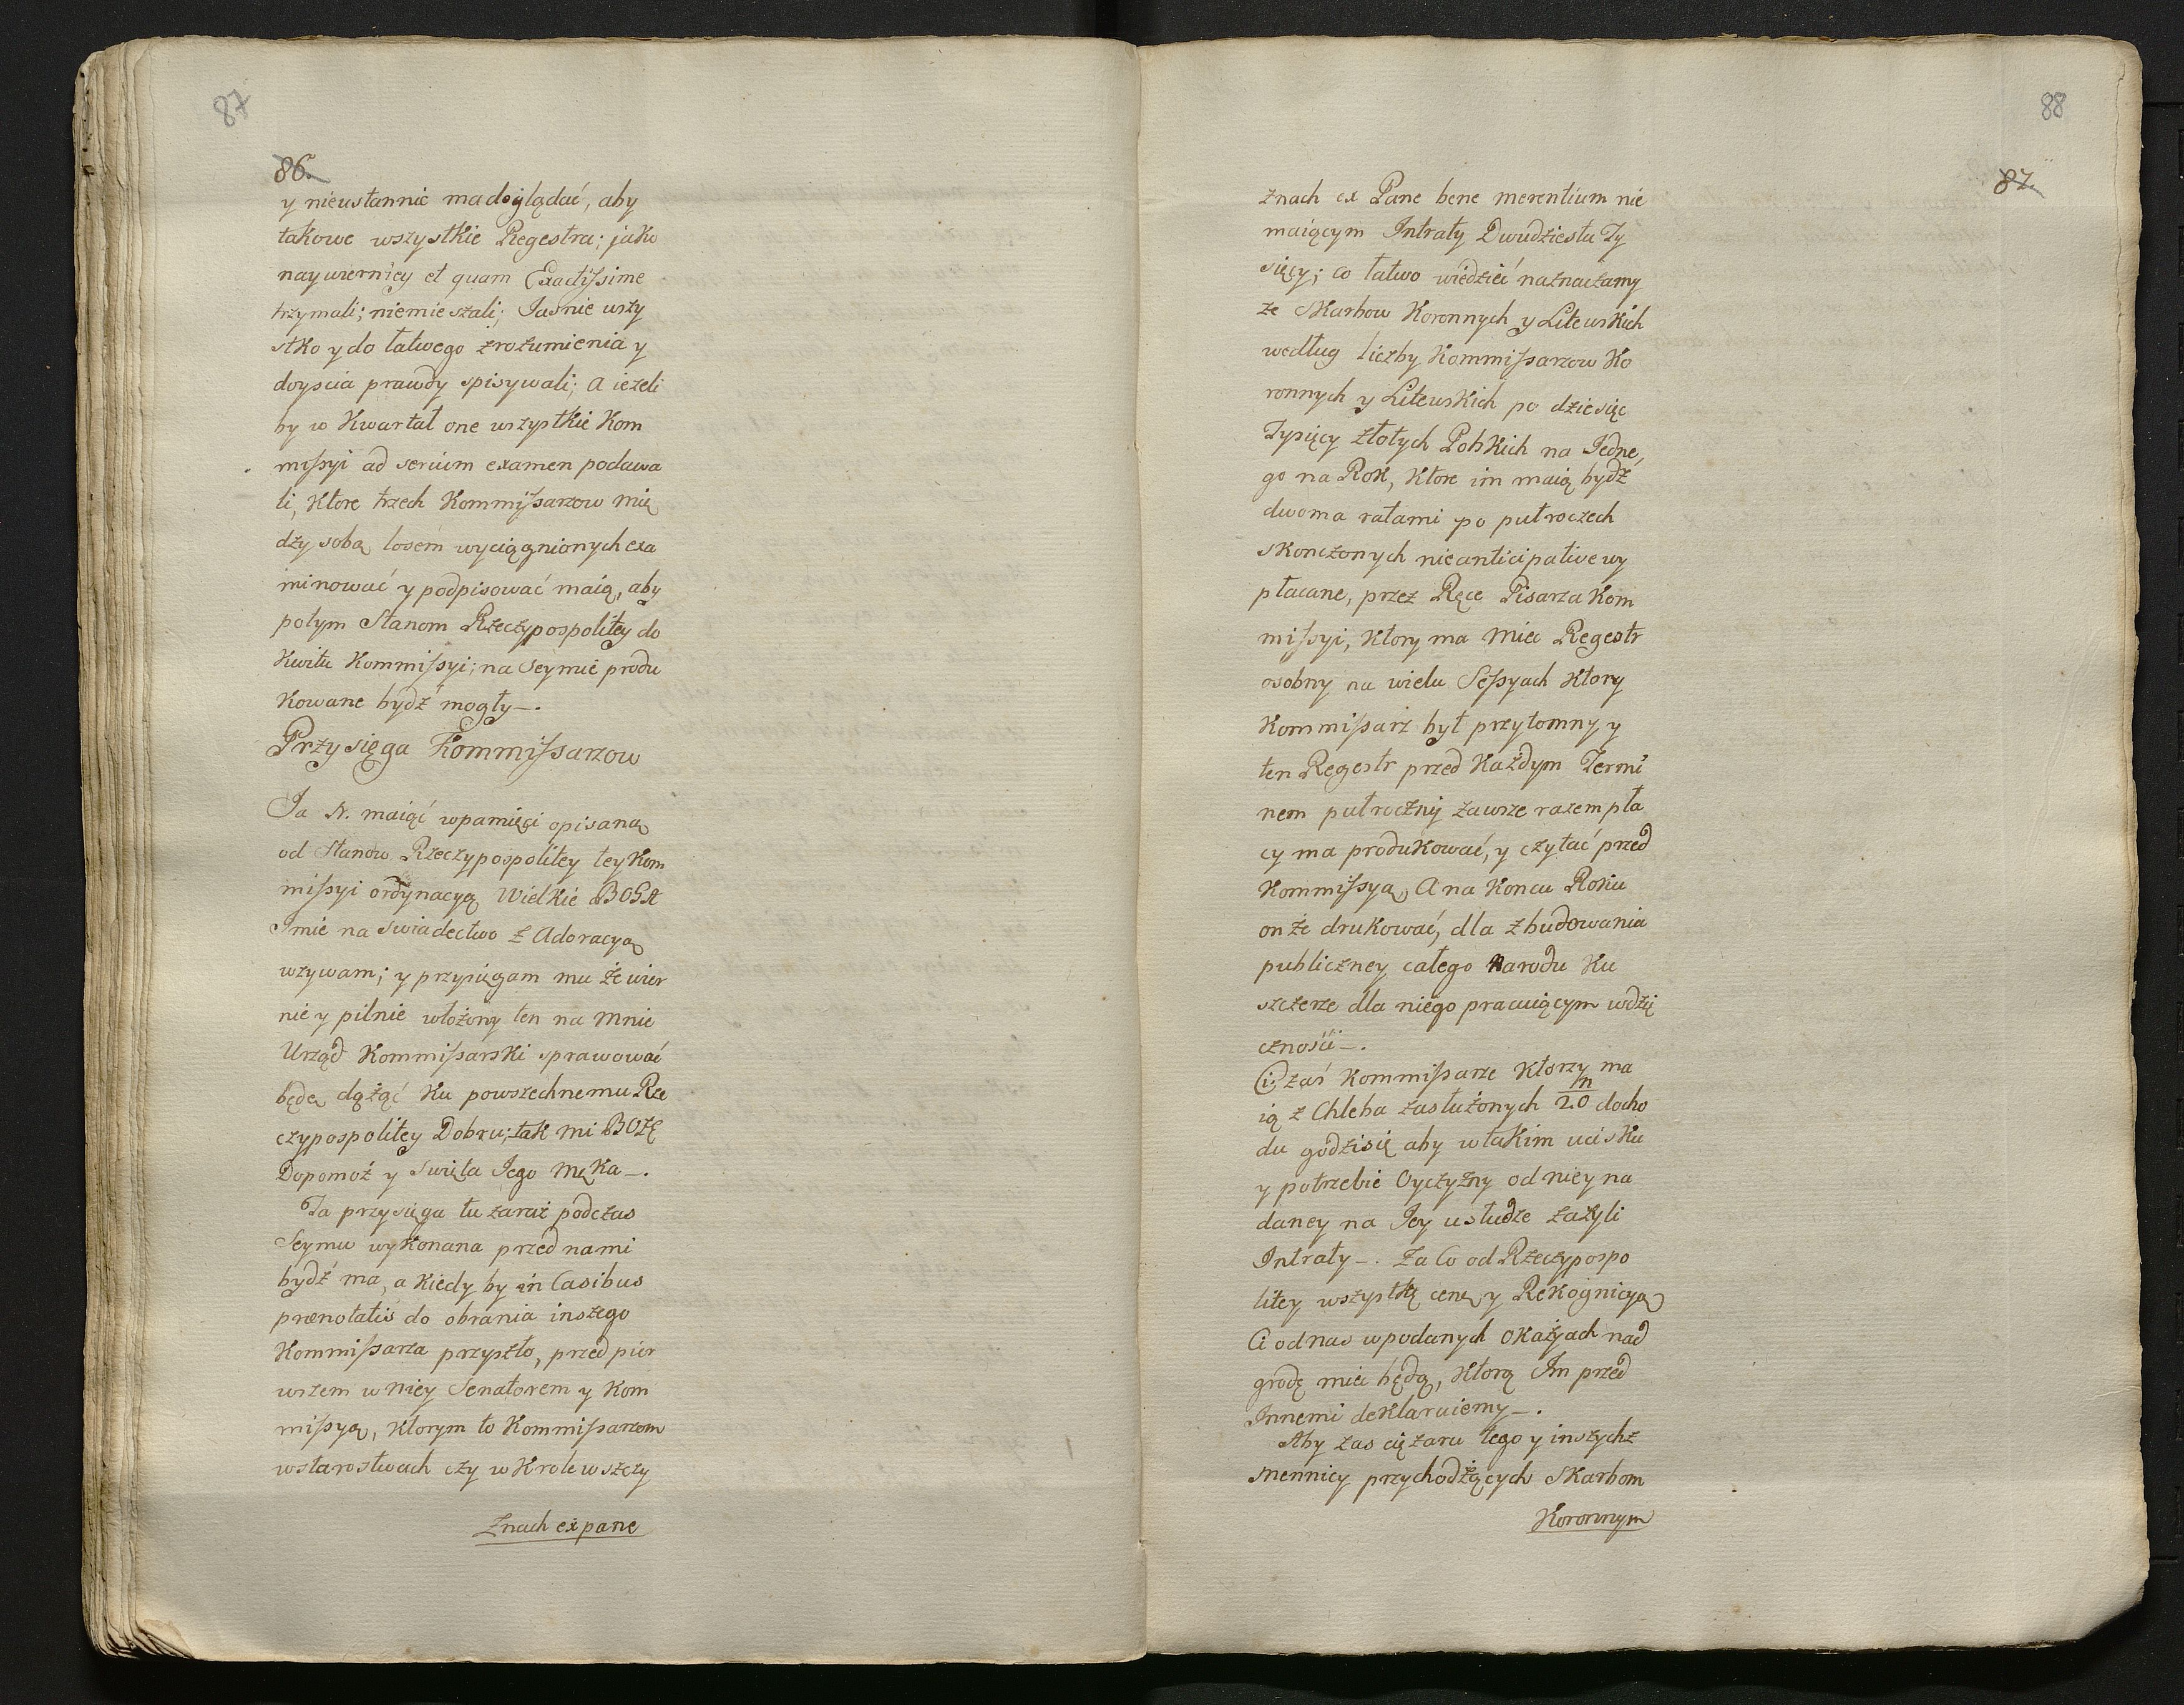 87
86.
y nieustannie ma doglądać, aby
takowe wszystkie Regestra; jako
naywierniey et quam Exactissime
trzymali; niemieszali; Jasnie wszy
stko y do łatwego zrozumienia y
doyscia prawdy spisywali; a ieżeli
by w Kwartał one wszystkie Kom
missyi ad serium examen podawa
li, Ktore trzech Kommissarzow mię
dzy sobą losem wyciągnionych exa
minować y podpisować maią, aby
potym Stanom Rzeczypospolitey do
Kwitu Kommissyi; na Seymie produ
Kowane bydź mogły—.
Przysięga Kommissarzow
Ja N. maiąc wpamięci opisaną
od Stanow Rzeczypospolitey tey Kom
missyi ordynacyą Wielkie BOGA
Imie na Swiadectwo z Adoracyą
wzywam; y przysięgam mu że wier
nie y pilnie włożony ten na mnie
Urząd Kommissarski sprawować
będę dążąc Ku powszechnemu Rze
czypospolitey Dobru; tak mi BOŻE
Dopomoż y Swięta Jego męka—.
Ta przysięga tu zaraz podczas
Seymu wykonana przed nami
bydź ma, a Kiedy by in Casibus
prænotatis do obrania inszego
Kommissarza przyszło, przed pier
wszem w niey Senatorem y Kom
missyą, Ktorym to Kommissarzom
wstarostwach czy w Krolewszczy
Znach ex pane
88
87.
znach ex Pane bene merentium nie
maiącym Intraty Dwudziestu Ty
sięcy; co łatwo wiedzieć naznaczamy
ze Skarbow Koronnych y Litewskich
według liczby Kommissarzow Ko
ronnych y Litewskich po dziesięc
Tysięcy złotych Polskich na Jedne,
go na Rok, Ktore im maią bydź
dwoma ratami po pułroczech
skonczonych nie anticipative wy
płacane, przez Ręce Pisarza Kom
missyi, Ktory ma miec Regestr
osobny na wielu Sessyach Ktory
Kommissarz był przytomny y
ten Regestr przed Każdym Termi
nem pułroczniy zawsze razem pła
cy ma produkować, y czytać przed
Kommissyą, A na Koncu Roku
on że drukować, dla zbudowania
publiczney całego Narodu Ku
szczerze dla niego pracuiącym wdzię
czności—.
Ci zaś Kommissarze Ktorzy ma
ią z Chleba zasłużonych 20/m docho
du godzi się aby w takim ucisku
y potrzebie Oyczyzny od niey na
daney na Jey usłudze zażyli
Intraty—. Za Co od Rzeczypospo
litey wszystkę cenę y Rekognicyą
Ci od nas wpodanych okazyach nad
grodę miec będą, Ktorą Im przed
Innemi deklaruiemy—.
Aby zas ciężaru tego y inszych z
mennicy przychodzących Skarbom
Koronnym